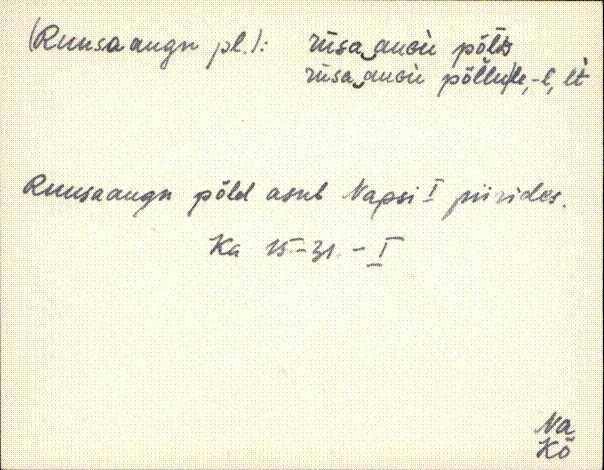 (Ruusaaugu pl.): rūsa‿auGù põlDs
rūsa‿auGù põllu|le, -l, lt
Ruusaaugu põld asub Napsi I piirides.
Ka 15-31. - I
Na
Kõ